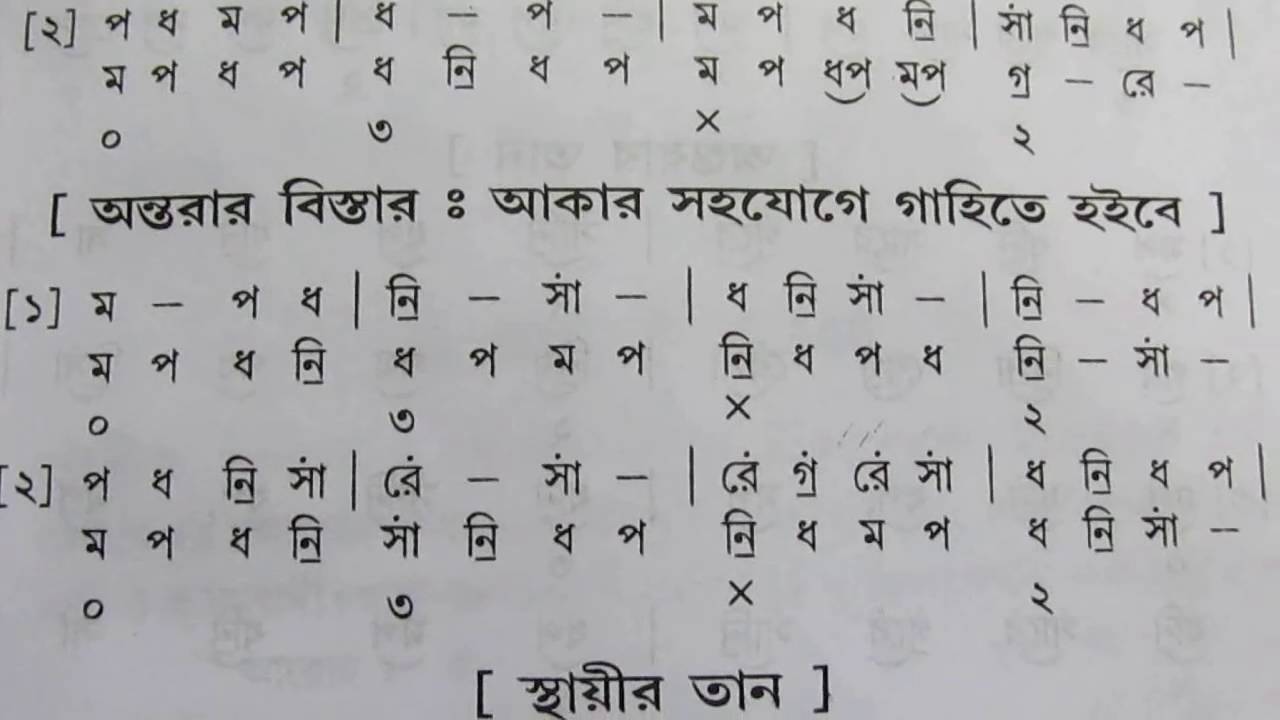 [২] প ধ ম প | ধ – প – | ম প ধ নি̲ | র্সা নি̲ ধ প |
ম প ধ প ধ নি̲ ধ প ম প ধপ মপ গ̲ – রে –
০ ৩ × ২
[ অন্তরার বিস্তার ঃ আকার সহযোগে গাহিতে হইবে ]
[১] ম – প ধ | নি̲ – সাং – | ধ নি̲ সাং – | নি̲ – ধ প |
ম প ধ নি̲ ধ প ম প নি̲ ধ প ধ নি̲ – সাং –
০ ৩ × ২
[২] প ধ নি̲ সাং | রেং – সাং – | রেং গ̲ং রেং সাং | ধ নি̲ ধ প |
ম প ধ নি̲ সাং নি̲ ধ প নি̲ ধ ম প ধ নি̲ সাং –
০ ৩ × ২
[ স্থায়ীর তান ]